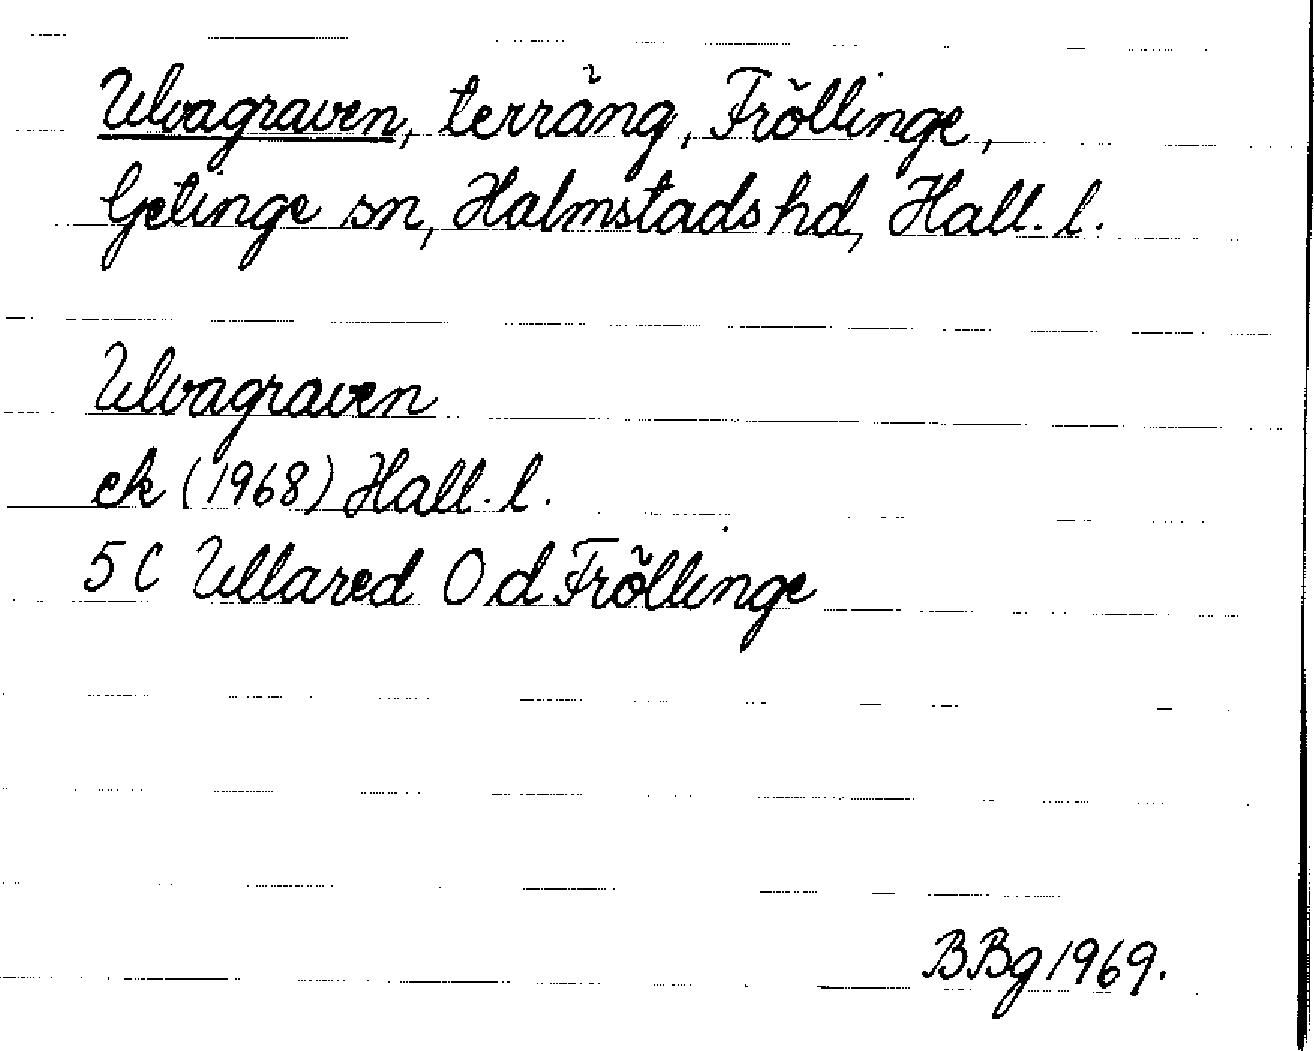 Ulvagraven, terräng, Fröllinge,
Getinge sn, Halmstads hd, Hall. l.
Ulvagraven
ek (1968) Hall. l.
5C Ullared 0 d Fröllinge
BBg 1969.